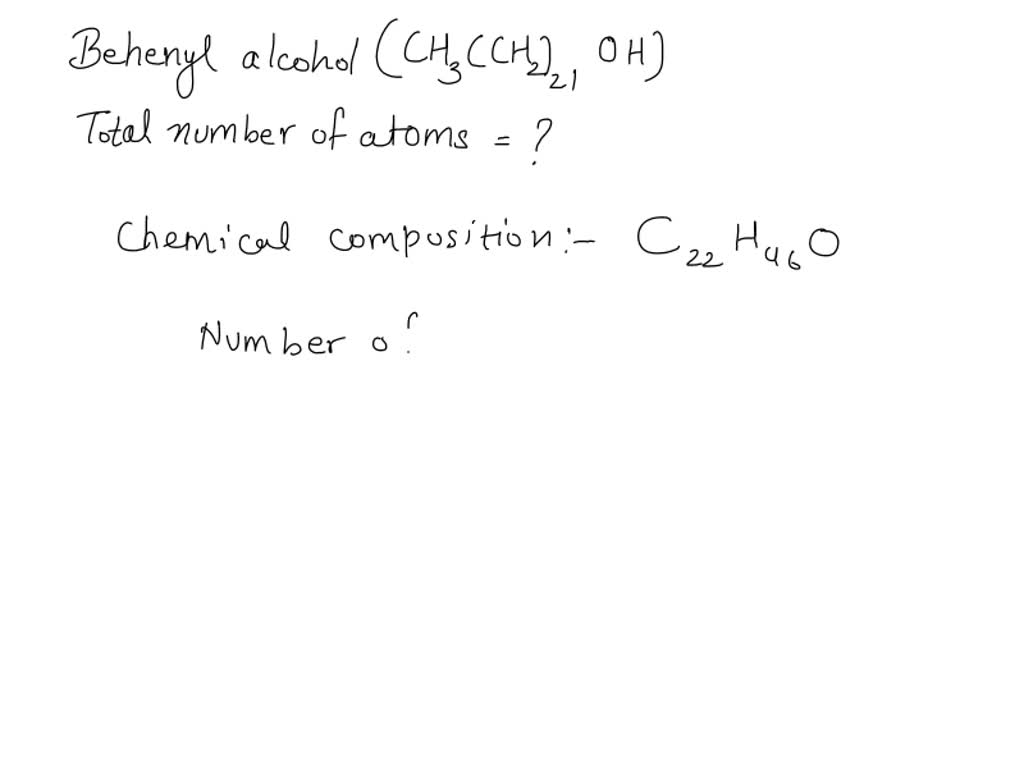 Behenyl alcohol (CH₃(CH₂)₂₁ OH)
Total number of atoms = ?
Chemical composition:- C₂₂H₄₆O
Number